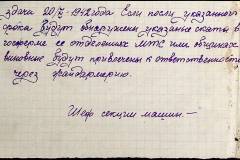 здачи 20/X-1942 года Если после указанного
срока будут обнаружены указанные скаты в
госферме ее отделениях МТС или общинах
виновные будут привлечены к ответственности
через жандармерию.
Шеф секции машины.—